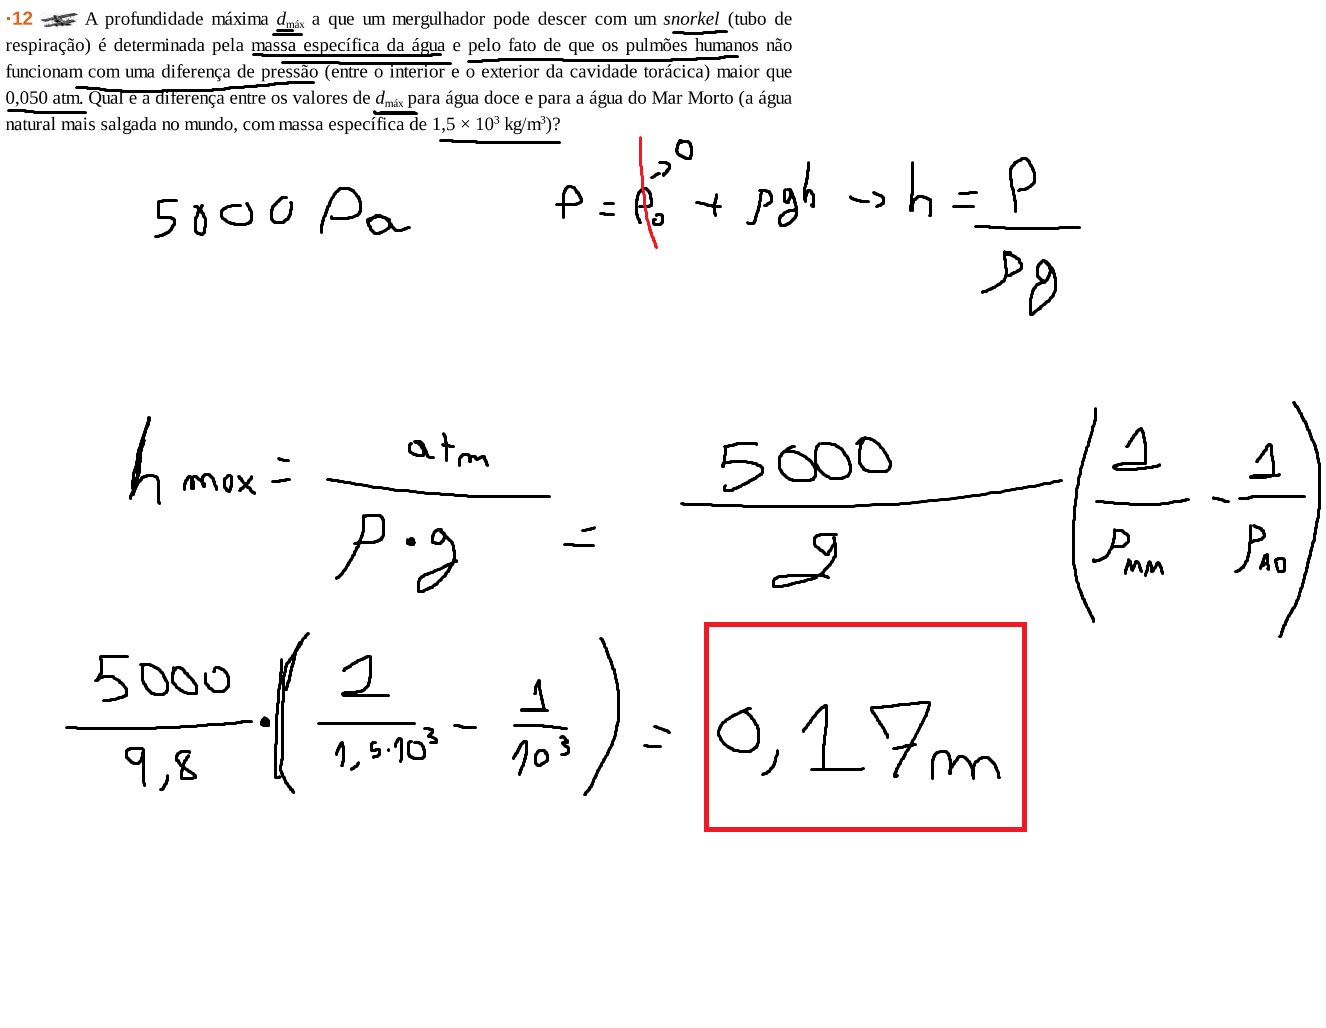 ·12 A profundidade máxima dmáx a que um mergulhador pode descer com um snorkel (tubo de
respiração) é determinada pela massa específica da água e pelo fato de que os pulmões humanos não
funcionam com uma diferença de pressão (entre o interior e o exterior da cavidade torácica) maior que
0,050 atm. Qual é a diferença entre os valores de dmáx para água doce e para a água do Mar Morto (a água
natural mais salgada no mundo, com massa específica de 1,5 × 10³ kg/m³)?
5000 Pa P = P₀ → 0 + ρgh → h = P / ρg
h max = atm / ρ·g = 5000 / g (1 / ρMM - 1 / ρAD)
5000 / 9,8 · (1 / 1,5·10³ - 1 / 10³) = 0,17m